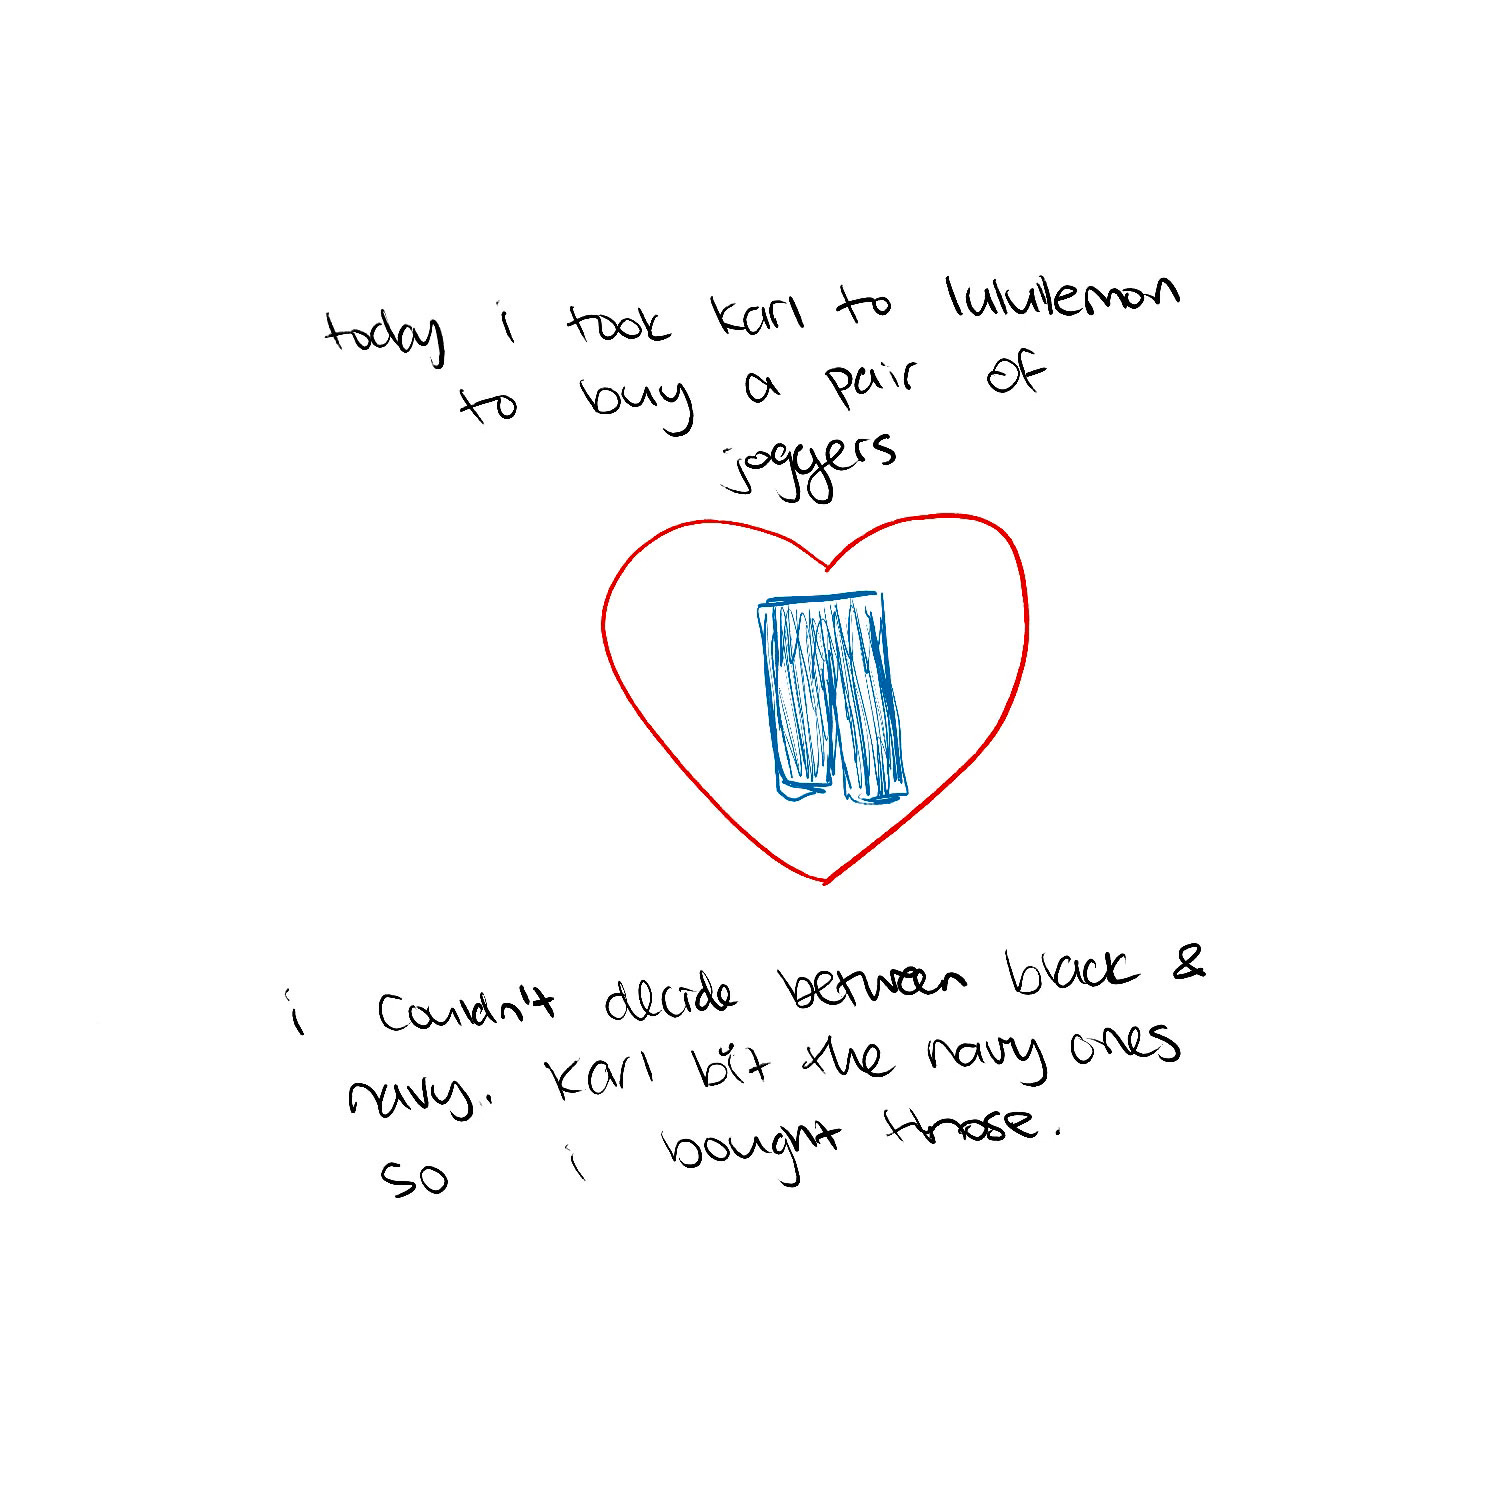 today i took karl to lululemon
to buy a pair of
joggers
i couldn't decide between black &
navy. karl bit the navy ones
so i bought those.